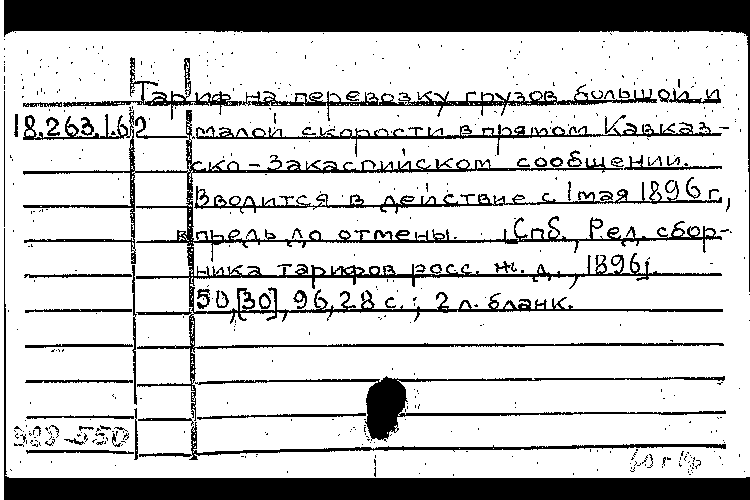 Тариф на перевозку грузов большой и
18.263.1.62 малой скорости в прямом Кавказ-
ско-Закаспийском сообщении.
Вводится в действие с 1 мая 1896 г.,
впредь до отмены. [Спб., Ред. сбор-
ника тарифов росс. ж. д., 1896].
50,[30], 96, 28 с.; 2 л. бланк.